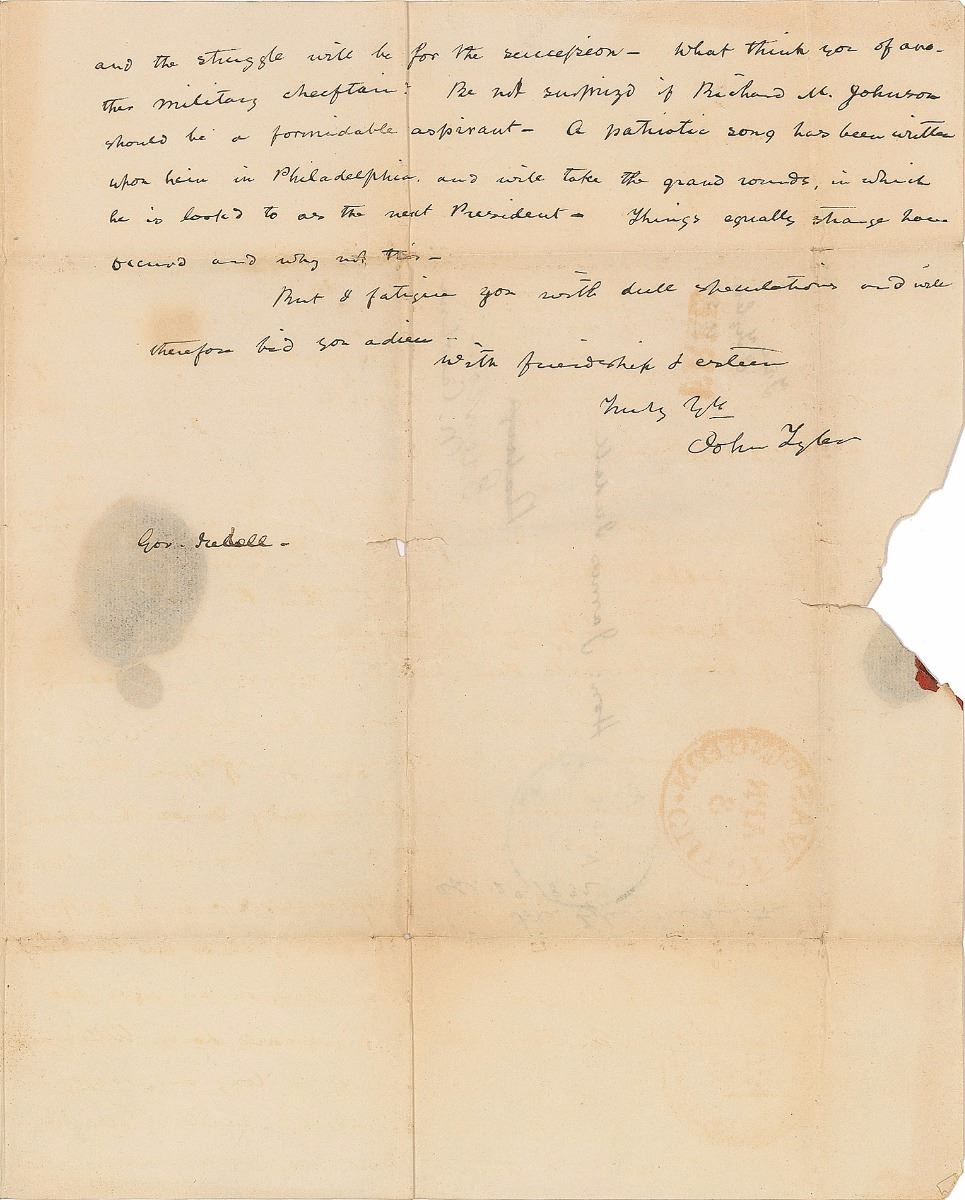 and the struggle will be for the succession – What think you of ano-
ther military cheeftain? Be not surprizd if Richard M. Johnson
should be a formidable aspirant – A patriotic song has been written
upon him in Philadelphia. and will take the grand rounds, in which
he is look'd to as the next President – Things equally strange have
occurd and why not this –
But I fatigue you with dull speculations and will
therefore bid you adieu
With friendship & esteem
Truly Yrs
John Tyler
Gov. Iredell –